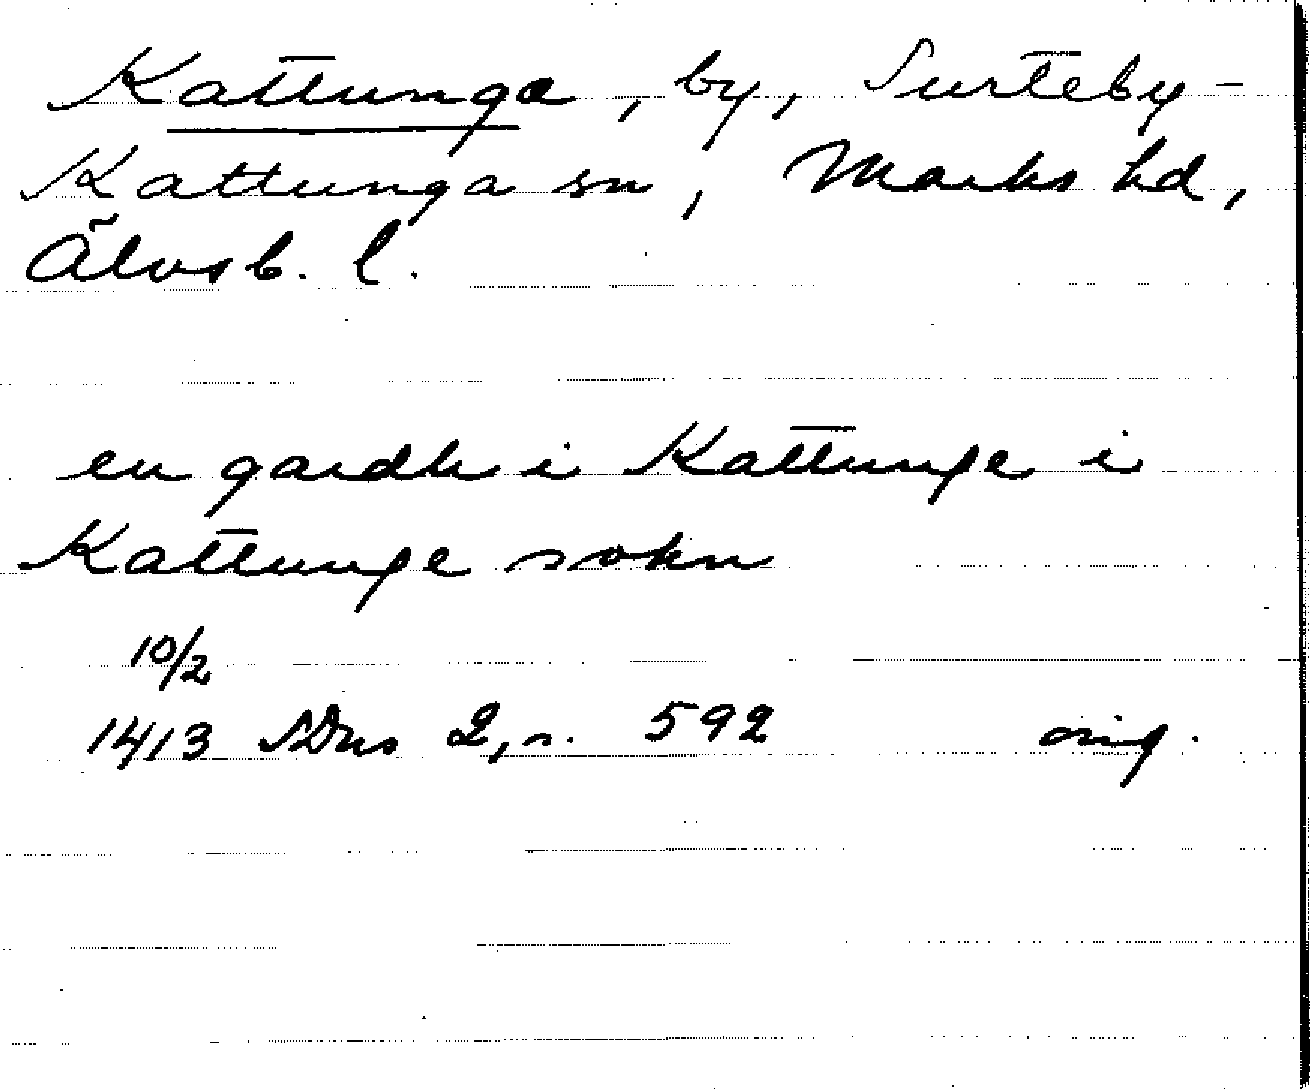 Kattunga, by, Surteby-
Kattunga sn, Marks hd,
Älvsb. l.
en gardh i Kattunge i
Kattunge sokn
10/2
1413 SDns 2, s. 592 orig.